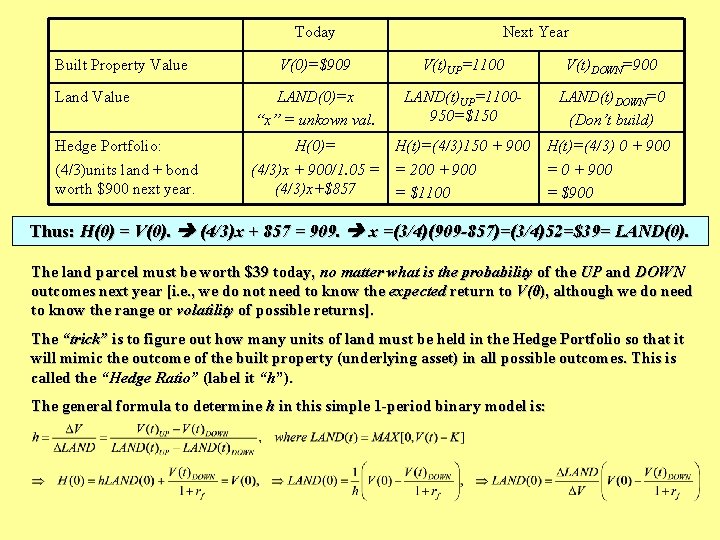 Today Next Year
Built Property Value V(0)=$909 V(t)UP=1100 V(t)DOWN=900
Land Value LAND(0)=x LAND(t)UP=1100- LAND(t)DOWN=0
“x” = unkown val. 950=$150 (Don’t build)
Hedge Portfolio: H(0)= H(t)=(4/3)150 + 900 H(t)=(4/3) 0 + 900
(4/3)units land + bond (4/3)x + 900/1.05 = = 200 + 900 = 0 + 900
worth $900 next year. (4/3)x+$857 = $1100 = $900
Thus: H(0) = V(0). ➔ (4/3)x + 857 = 909. ➔ x =(3/4)(909 -857)=(3/4)52=$39= LAND(0).
The land parcel must be worth $39 today, no matter what is the probability of the UP and DOWN
outcomes next year [i.e., we do not need to know the expected return to V(0), although we do need
to know the range or volatility of possible returns].
The “trick” is to figure out how many units of land must be held in the Hedge Portfolio so that it
will mimic the outcome of the built property (underlying asset) in all possible outcomes. This is
called the “Hedge Ratio” (label it “h”).
The general formula to determine h in this simple 1-period binary model is:
h = ΔV / ΔLAND = (V(t)UP − V(t)DOWN) / (LAND(t)UP − LAND(t)DOWN), where LAND(t) = MAX[0,V(t) − K]
⇒ H(0) = hLAND(0) + V(t)DOWN / (1 + rf) = V(0), ⇒ LAND(0) = 1/h (V(0) − V(t)DOWN / (1 + rf)), ⇒ LAND(0) = ΔLAND / ΔV (V(0) − V(t)DOWN / (1 + rf))